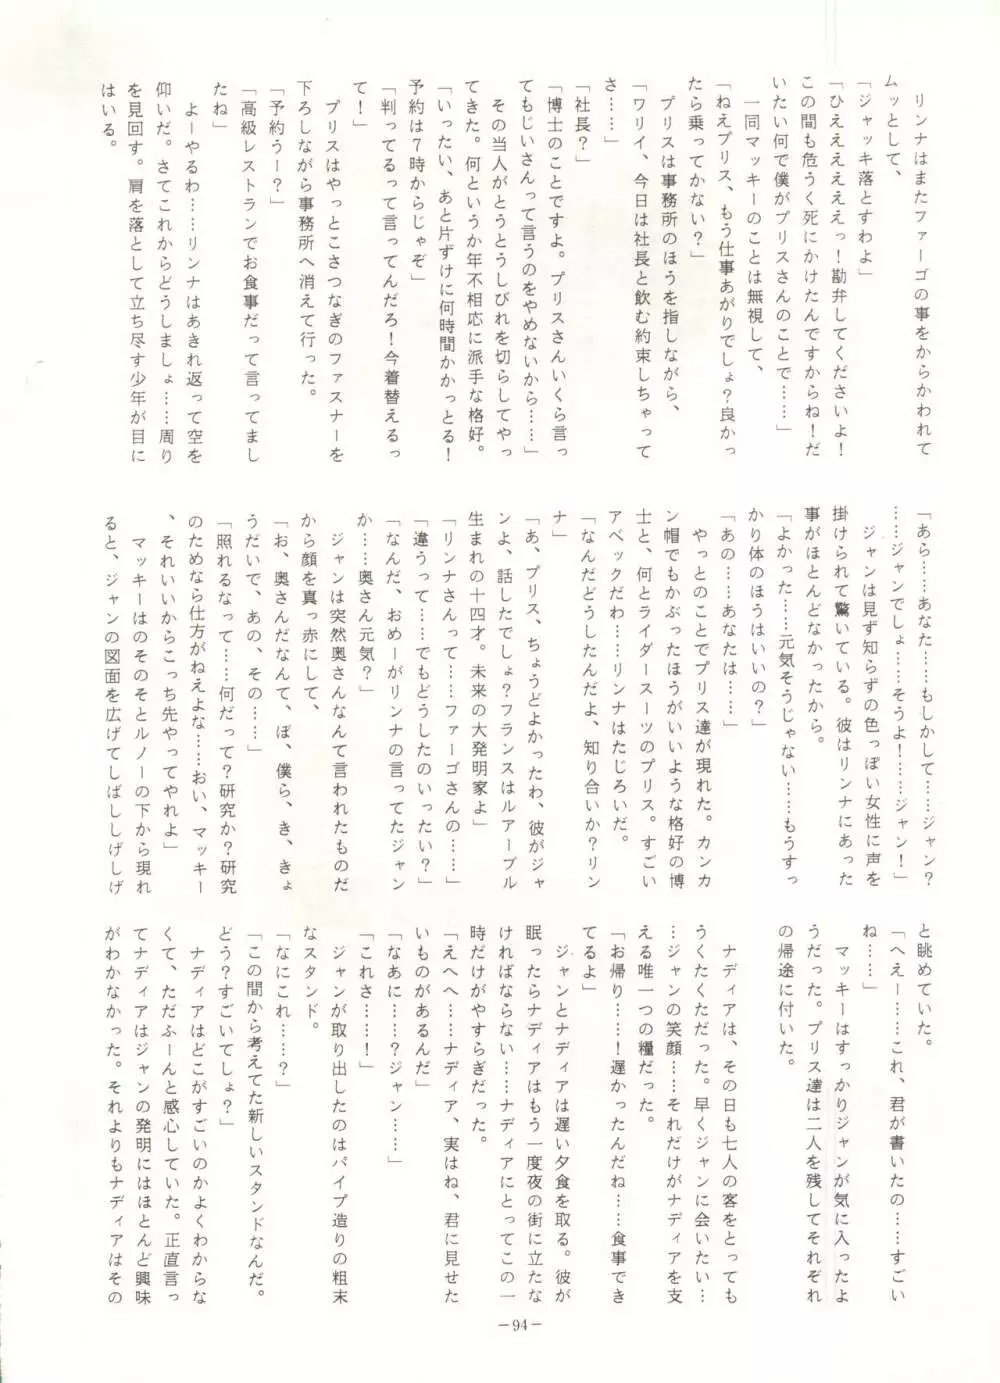 リンナはまたファーゴの事をからかわれて
ムッとして、
「ジャッキ落とすわよ」
「ひえええええっ！勘弁してくださいよ！
この間も危うく死にかけたんですからね！だ
いたい何で僕がプリスさんのことで……」
一同マッキーのことは無視して、
「ねえプリス、もう仕事あがりでしょ？良かっ
たら乗ってかない？」
プリスは事務所のほうを指しながら、
「ワリイ、今日は社長と飲む約束しちゃって
さ……」
「社長？」
「博士のことですよ。プリスさんいくら言っ
てもじいさんって言うのをやめないから……」
その当人がとうとうしびれを切らしてやっ
てきた。何というか年不相応に派手な格好。
「いったい、あと片ずけに何時間かかっとる！
予約は７時からじゃぞ」
「判ってるって言ってんだろ！今着替えるっ
て！」
プリスはやっとこさつなぎのファスナーを
下ろしながら事務所へ消えて行った。
「予約うー？」
「高級レストランでお食事だって言ってまし
たね」
よーやるわ……リンナはあきれ返って空を
仰いだ。さてこれからどうしましょ……周り
を見回す。肩を落として立ち尽す少年が目に
はいる。
「あら……あなた……もしかして……ジャン？
……ジャンでしょ……そうよ！……ジャン！」
ジャンは見ず知らずの色っぽい女性に声を
掛けられて驚いている。彼はリンナにあった
事がほとんどなかったから。
「よかった……元気そうじゃない……もうすっ
かり体のほうはいいの？」
「あの……あなたは……」
やっとのことでプリス達が現れた。カンカ
ン帽でもかぶったほうがいいような格好の博
士と、何とライダースーツのプリス。すごい
アベックだわ……リンナはたじろいだ。
「なんだどうしたんだよ、知り合いか？リン
ナ」
「あ、プリス、ちょうどよかったわ、彼がジャ
ンよ、話したでしょ？フランスはルアーブル
生まれの十四才。未来の大発明家よ」
「リンナさんって……ファーゴさんの……」
「違うって……でもどうしたのいったい？」
「なんだ、おめーがリンナの言ってたジャン
か……奥さん元気？」
ジャンは突然奥さんなんて言われたものだ
から顔を真っ赤にして、
「お、奥さんだなんて、ぼ、僕ら、き、きょ
うだいで、あの、その……」
「照れるなって……何だって？研究か？研究
のためなら仕方がねえよな……おい、マッキー
、それいいからこっち先やってやれよ」
マッキーはのそのそとルノーの下から現れ
ると、ジャンの図面を広げてしばししげしげ
と眺めていた。
「へえー……これ、君が書いたの……すごい
ね……」
マッキーはすっかりジャンが気に入ったよ
うだった。プリス達は二人を残してそれぞれ
の帰途に付いた。
ナディアは、その日も七人の客をとっても
うくたくただった。早くジャンに会いたい…
…ジャンの笑顔……それだけがナディアを支
える唯一つの糧だった。
「お帰り……！遅かったんだね……食事でき
てるよ」
ジャンとナディアは遅い夕食を取る。彼が
眠ったらナディアはもう一度夜の街に立たな
ければならない……ナディアにとってこの一
時だけがやすらぎだった。
「えへへ……ナディア、実はね、君に見せた
いものがあるんだ」
「なあに……？ジャン……」
「これさ……！」
ジャンが取り出したのはパイプ造りの粗末
なスタンド。
「なにこれ……？」
「この間から考えてた新しいスタンドなんだ。
どう？すごいでしょ？」
ナディアはどこがすごいのかよくわからな
くて、ただふーんと感心していた。正直言っ
てナディアはジャンの発明にはほとんど興味
がわかなかった。それよりもナディアはその
－94－